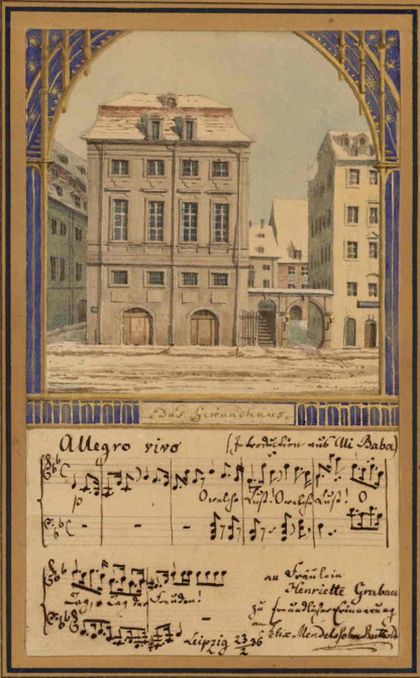 Das Gewandhaus.
Allegro vivo (Introduction aus Ali Baba)
p O welche Lust! O welche Lust! O
Tag, o Tag der Freuden!
an Fräulein
Henriette Grabau
zu freundlicher Erinnerung
an
Leipzig 23/2 36 Felix Mendelssohn Bartholdy